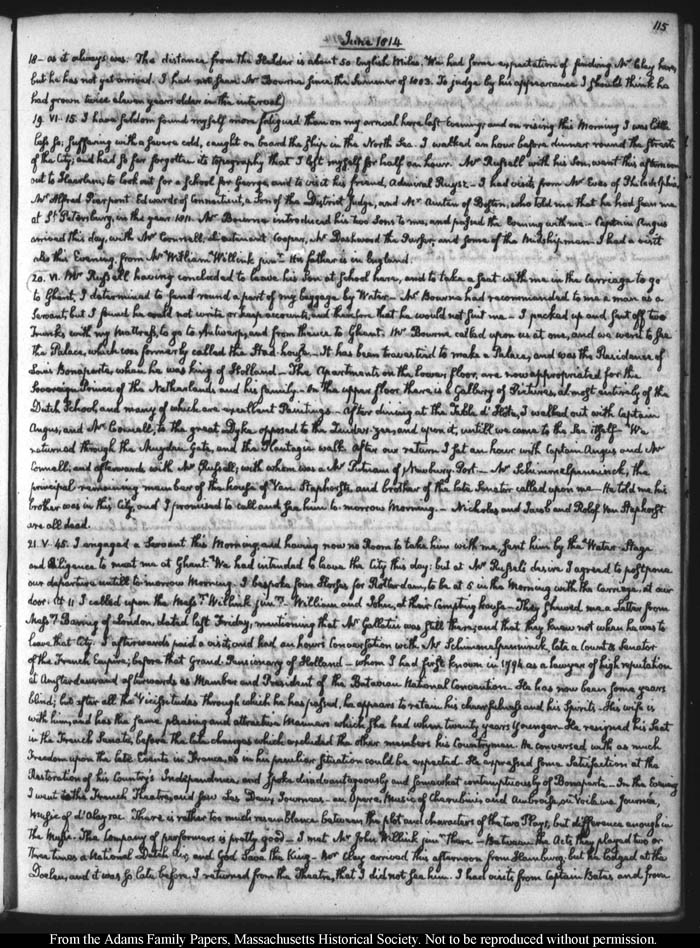 115
June 1814
18 - as it always was. The distance from the Helder is about 50 English Miles. We had some expectation of finding Mr Clay here,
but he has not yet arrived. I had not seen Mr Bourne since the Summer of 1803. To judge by his appearance I should think he
had grown twice eleven years older in the interval.
19. VI-15. I have seldom found myself more fatigued than on my arrival here last Evening; and on rising this Morning I was little
less so; suffering with a severe cold, caught on board the Ship in the North Sea. I walked an hour before dinner round the Streets
of the City, and had so far forgotten its topography that I lost myself for half an hour. Mr Russell with his Son, went this afternoon
out to Haarlem; to look out for a School for George, and to visit his friend, Admiral Ruysz. - I had visits from Mr Eves of Philadelphia,
Mr Alfred Pierpont Edwards of Connecticut, a Son of the District Judge, and Mr Austin of Boston, who told me that he had seen me
at St Petersburg, in the year 1811. Mr Bourne introduced his two Sons to me, and passed the Evening with me. Captain Angus
arrived this day, with Mr Connell, Lieutenant Cooper, Mr Dashwood the Purser, and some of the Midshipmen. I had a visit
also this Evening, from Mr William Willink junr. His father is in England.
20. VI. Mr Russell having concluded to leave his Son at School here, and to take a seat with me in the Carriage to go
to Ghent, I determined to send round a part of my baggage by Water. - Mr Bourne had recommended to me a man as a
Servant, but I found he could not write or keep accounts, and therefore that he would not suit me - I packed up and sent off two
Trunks with my Mattress, to go to Antwerp, and from thence to Ghent. Mr Bourne called upon us at one, and we went to see
the Palace, which was formerly called the Stad-house. It has been travestied to make a Palace, and was the Residence of
Louis Bonaparte, when he was king of Holland - The Apartments on the lower floor, are now appropriated for the
Sovereign Prince of the Netherlands and his family. On the upper floor there is a Gallery of Pictures, almost entirely of the
Dutch School, and many of which are excellent Paintings. - After dining at the Table d'Hote, I walked out with Captain
Angus, and Mr Connell, to the great Dyke opposed to the Zuider-zee, and upon it, untill we came to the Sea itself - We
returned through the Muyden Gate, and the Plantagie walk. After our return I sat an hour with Captain Angus and Mr
Connell; and afterwards with Mr Russell; with whom was a Mr Putnam of Newbury-Port. - Mr Schimmelpenninck, the
principal remaining member of the house of Van Staphorst, and brother of the late Senator called upon me - He told me his
brother was in this City, and I promised to call and see him to-morrow Morning. - Nicholas and Jacob and Rolof Van Staphorst
are all dead.
21. V-45. I engaged a Servant this Morning, and having now no Room to take him with me, sent him by the Water-Stage
and Diligence to meet me at Ghent. We had intended to leave the City this day; but at Mr Russell's desire I agreed to postpone
our departure untill to-morrow Morning. I bespoke four Horses for Rotterdam, to be at 5 in the Morning with the Carriage, at our
door. At 11 I called upon the Messrs Willink junrs - William and John, at their Compting house - They shewed me a letter from
Messrs Baring of London, dated last Friday, mentioning that Mr Gallatin was still there; and that they knew not when he was to
leave that City. I afterwards paid a visit, and had an hour's Conversation with Mr Schimmelpenninck, late a Count & Senator
of the French Empire; before that Grand-Pensionary of Holland - whom I had first known in 1794 as a lawyer of high reputation
at Amsterdam and afterwards as Member and President of the Batavian National Convention. He has now been some years
blind; but after all the Vicissitudes through which he has passed, he appears to retain his chearfulness and his Spirits. His wife is
with him, and has the same pleasing and attractive Manners which she had when twenty years younger. He resigned his Seat
in the French Senate, before the late changes which excluded the other members his Countrymen. He conversed with as much
Freedom upon the late Events in France, as in his peculiar situation could be expected. He expressed some Satisfaction at the
Restoration of his Country's Independence, and spoke disadvantageously and somewhat contemptuously of Bonaparte. - In the Evening
I went to the French Theatre, and saw Les Deux Journées - an Opera, Music of Cherubini, and Ambroise, ou Voila ma Journée,
Music of d'Alayrac. There is rather too much resemblance between the plot and characters of the two Plays, but difference enough in
the Music. The Company of performers is pretty good - I met Mr John Willink junr there - Between the Acts they played two or
three times a National Dutch Air, and God Save the King - Mr Clay arrived this afternoon from Hamburg, but he lodged at the
Doelen, and it was so late before I returned from the Theatre, that I did not see him. I had visits from Captain Bates and from
From the Adams Family Papers, Massachusetts Historical Society. Not to be reproduced without permission.